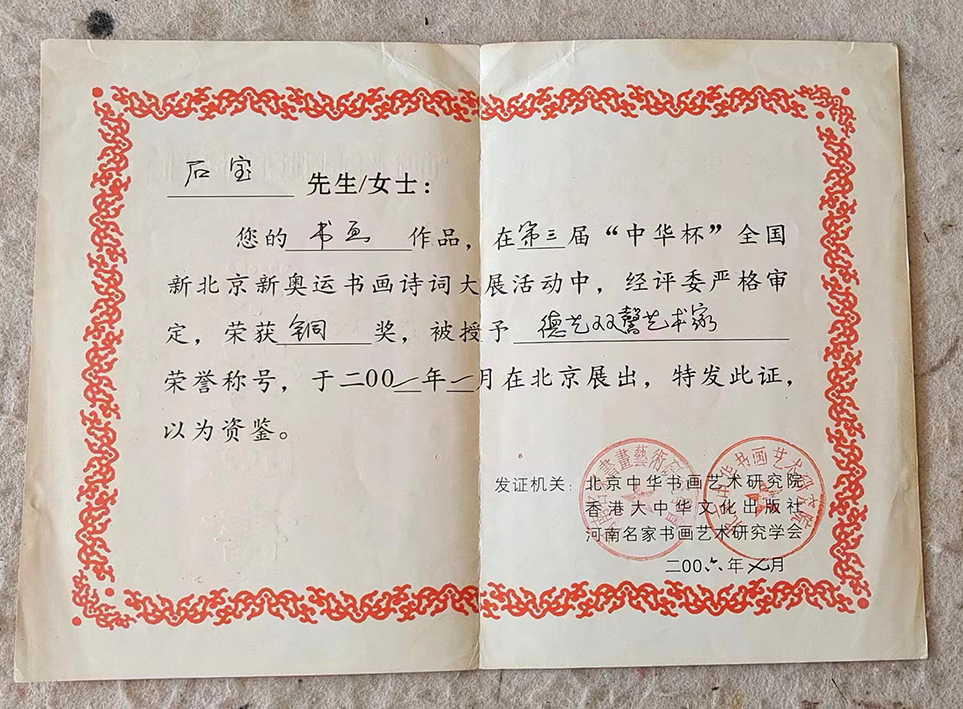 石宝 先生/女士：
您的书画作品，在第三届“中华杯”全国
新北京新奥运书画诗词大展活动中，经评委严格审
定，荣获铜奖，被授予德艺双馨艺术家
荣誉称号，于二00一年一月在北京展出，特发此证，
以为资鉴。
发证机关：北京中华书画艺术研究院
香港大中华文化出版社
河南名家书画艺术研究学会
二00六年 月